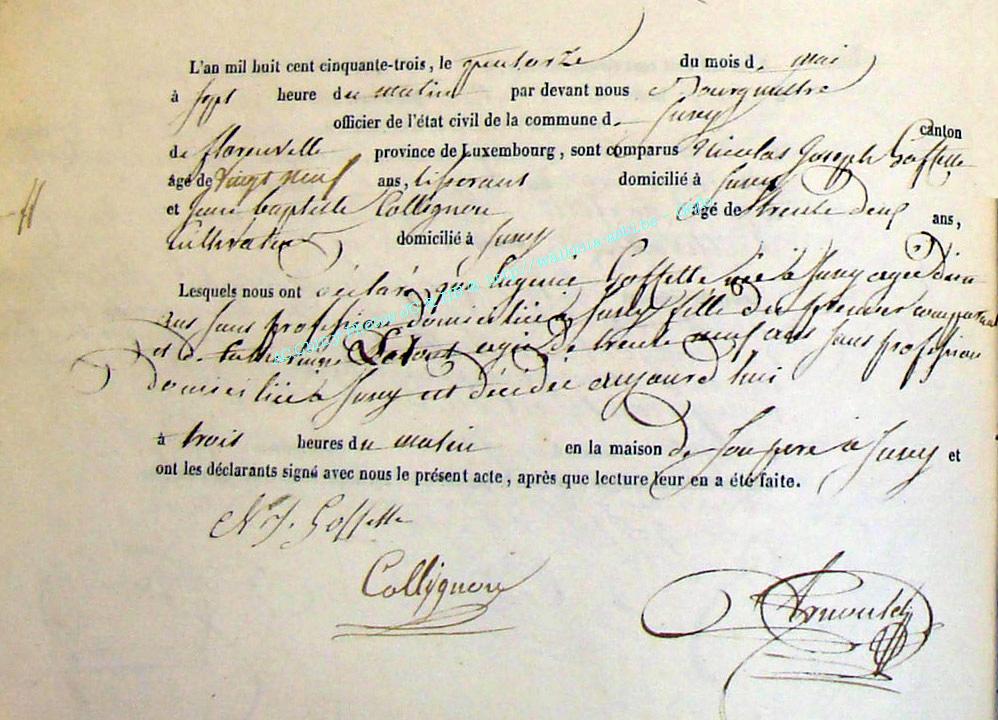 L'an mil huit cent cinquante-trois, le quatorze du mois d. mai
à sept heure du matin par devant nous Bourgmestre
officier de l'état civil de la commune d. Jusey
canton
de florenville province de Luxembourg, sont comparus Nicolas Joseph Goffette
âgé de vingt neuf ans, tisserant domicilié à Jusey
et jean baptiste Collignon âgé de trente deux ans,
Cultivateur domicilié à Jusey
Lesquels nous ont déclaré que Eugénie Goffette née à Jusey agée d'un
ans sans profession domiciliée à Jusey fille du premier comparant
et d. agée de trente neuf ans sans profession
domiciliée à Jusey est décédée aujourd'hui
à trois heures du matin en la maison de son pere à Jusey et
ont les déclarants signé avec nous le présent acte, après que lecture leur en a été faite.
N. J. Goffette
Collignon